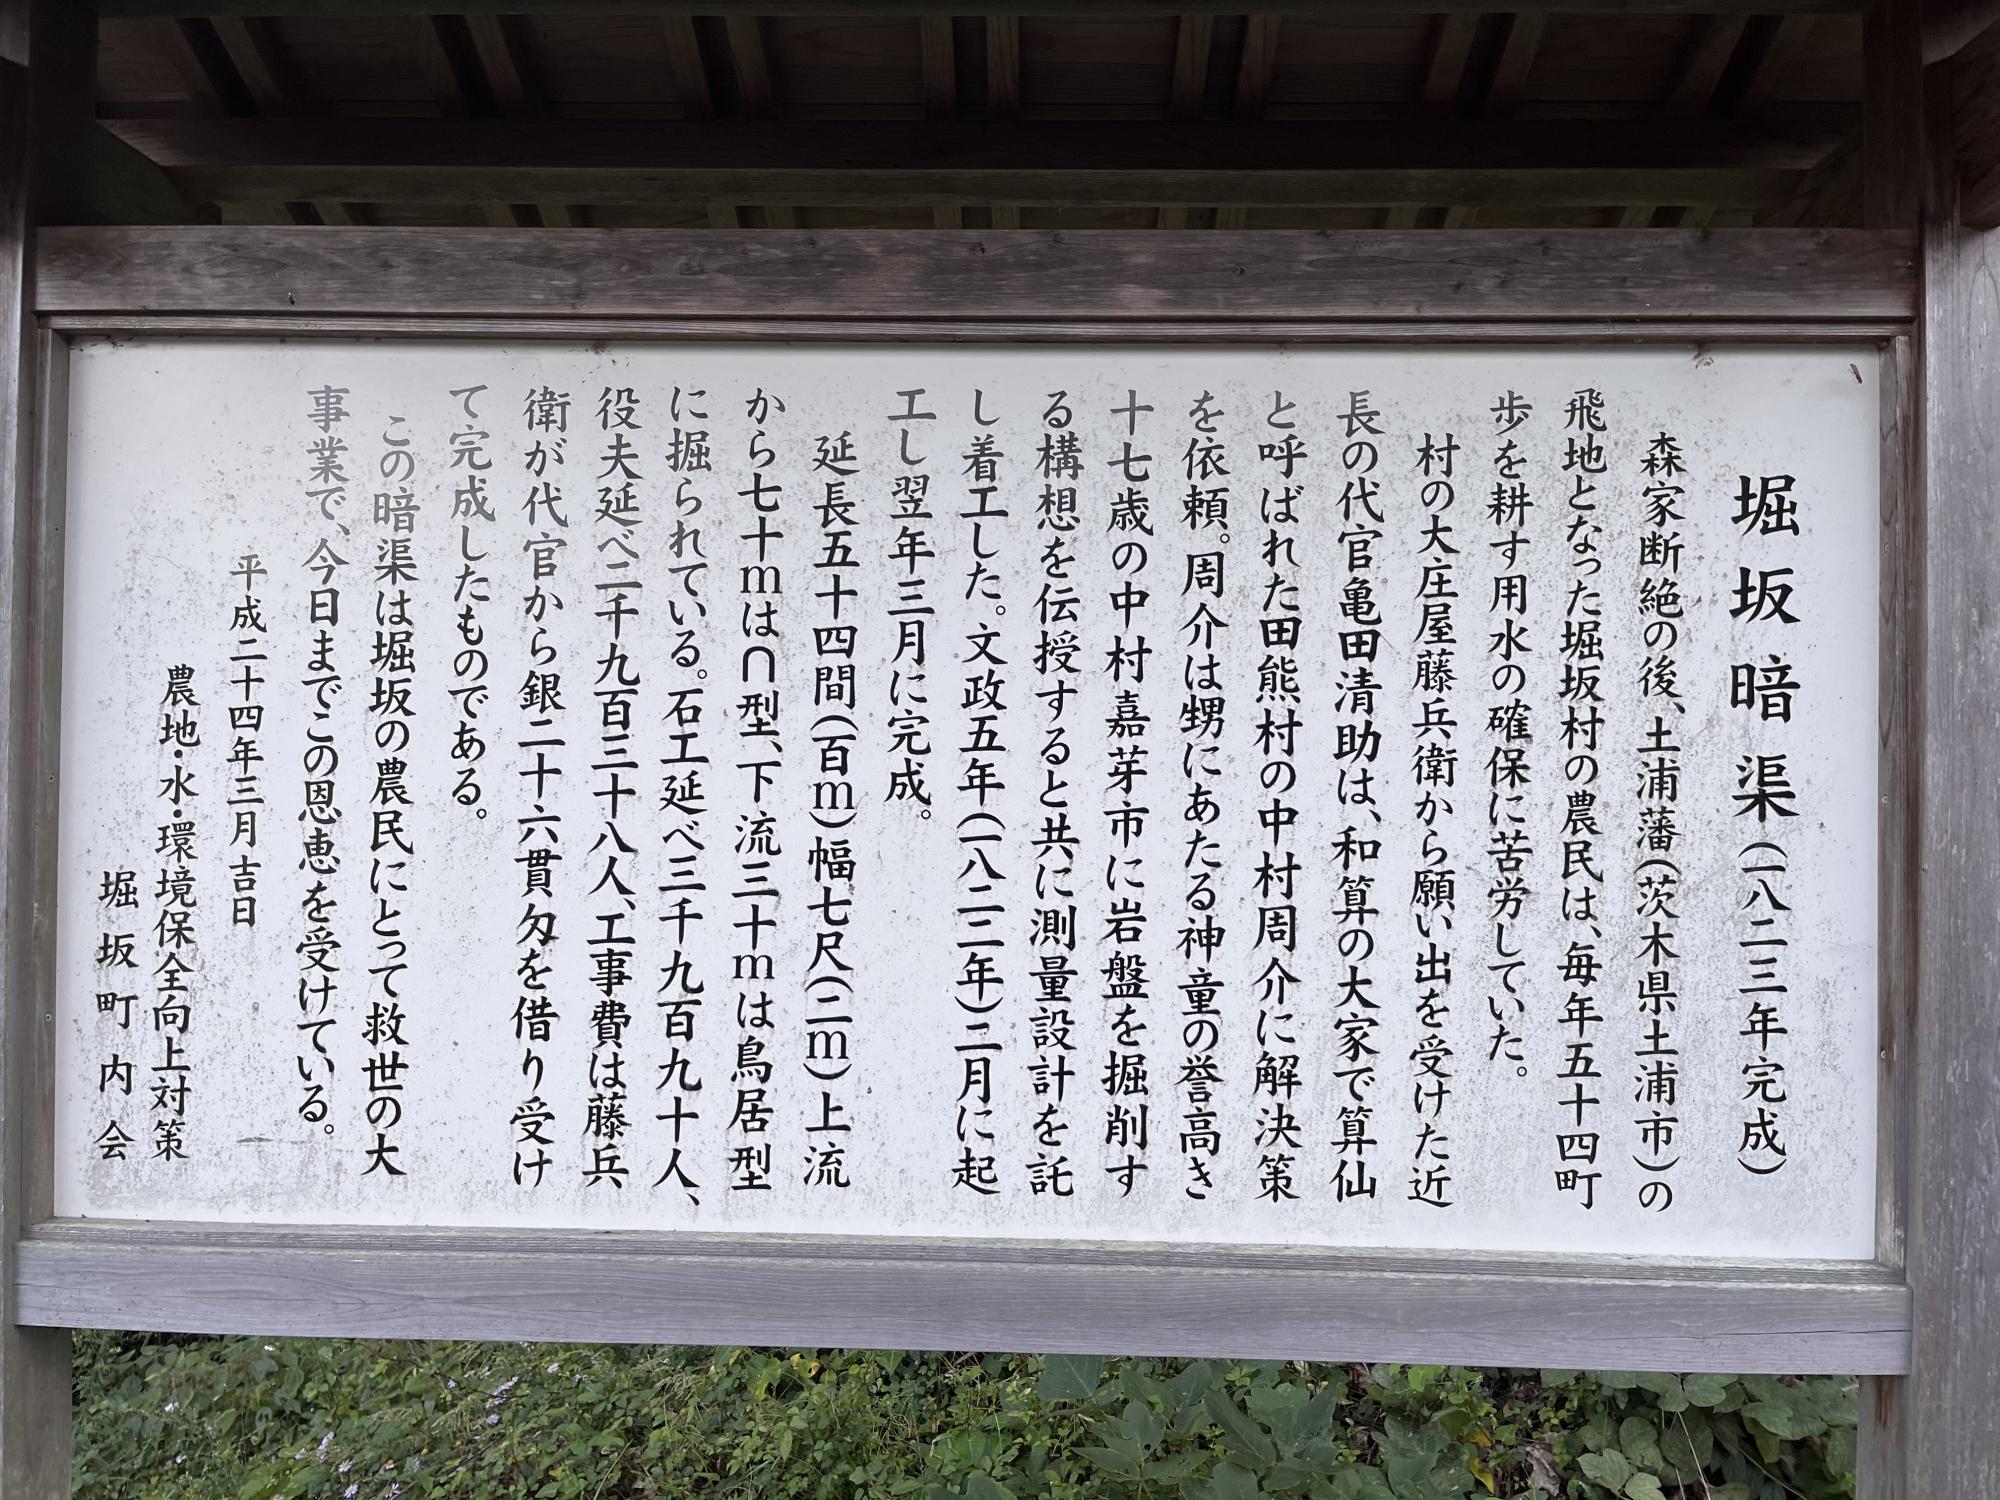 堀坂暗渠(一八二三年完成)
森家断絶の後、土浦藩(茨木県土浦市)の
飛地となった堀坂村の農民は、毎年五十四町
歩を耕す用水の確保に苦労していた。
村の大庄屋藤兵衛から願い出を受けた近
長の代官亀田清助は、和算の大家で算仙
と呼ばれた田熊村の中村周介に解決策
を依頼。周介は甥にあたる神童の誉高き
十七歳の中村嘉芽市に岩盤を掘削す
る構想を伝授すると共に測量設計を託
し着工した。文政五年(一八二二年)二月に起
工し翌年三月に完成。
延長五十四間(百m)幅七尺(二m)上流
から七十mは∩型、下流三十mは鳥居型
に掘られている。石工延べ三千九百九十人、
役夫延べ二千九百三十八人、工事費は藤兵
衛が代官から銀二十六貫匁を借り受け
て完成したものである。
この暗渠は堀坂の農民にとって救世の大
事業で、今日までこの恩恵を受けている。
平成二十四年三月吉日
農地・水・環境保全向上対策
堀坂町内会